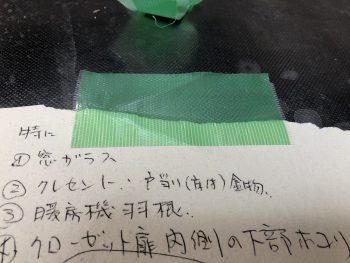 特に
① 窓ガラス
② クレセント・戸当り(有は)金物、
③ 暖房機羽根、
④ クローゼット扉内側の下部ホコリ